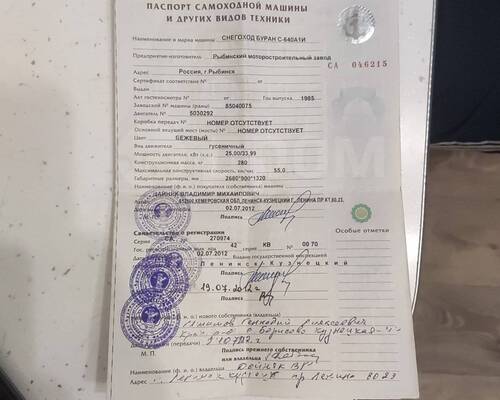 ПАСПОРТ САМОХОДНОЙ МАШИНЫ
И ДРУГИХ ВИДОВ ТЕХНИКИ
Наименование и марка машины СНЕГОХОД БУРАН С-640А1И
Предприятие-изготовитель Рыбинский моторостроительный завод
СА 046215
Адрес Россия, г.Рыбинск
Сертификат соответствия № от
Выдан
Акт гостехосмотра № от Год выпуска 1985
Заводской № машины (рамы) 85040075
Двигатель № 5030292
Коробка передач № НОМЕР ОТСУТСТВУЕТ
Основной ведущий мост (мосты) № НОМЕР ОТСУТСТВУЕТ
Цвет БЕЖЕВЫЙ
Вид движителя гусеничный
Мощность двигателя, кВт (л.с.) 25,00/33.99
Конструкционная масса, кг 280
Максимальная конструктивная скорость, км/ч 55,0
Габаритные размеры, мм 2680*900*1320
Наименование (ф. и. о.) покупателя (собственника) машины
ВЛАДИМИР МИХАЙЛОВИЧ
Адрес КЕМЕРОВСКАЯ ОБЛ, ЛЕНИНСК-КУЗНЕЦКИЙ Г, ЛЕНИНА ПР КТ,80,23,
02.07.2012
Подпись
Свидетельство о регистрации
Особые отметки
Серия СА № 270974
Гос. регистрационный 42 КВ 00 70
02.07.2012 Выдано государственной инспекцией
Ленинск-Кузнецкий
Подпись
19.07.2012г
Подпись
(ф. и. о.) нового собственника (владельца)
Геннадий Алексеевич
Дата продажи (передачи)
Подпись прежнего собственника
М. П. или владельца
(ф. и. о.) собственника (владельца)
Адрес пр Ленина 80 23